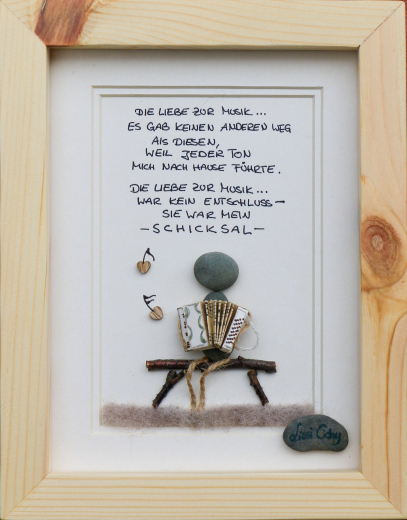 DIE LIEBE ZUR MUSIK...
ES GAB KEINEN ANDEREN WEG
ALS DIESEN,
WEIL JEDER TON
MICH NACH HAUSE FÜHRTE.
DIE LIEBE ZUR MUSIK...
WAR KEIN ENTSCHLUSS-
SIE WAR MEIN
-SCHICKSAL-